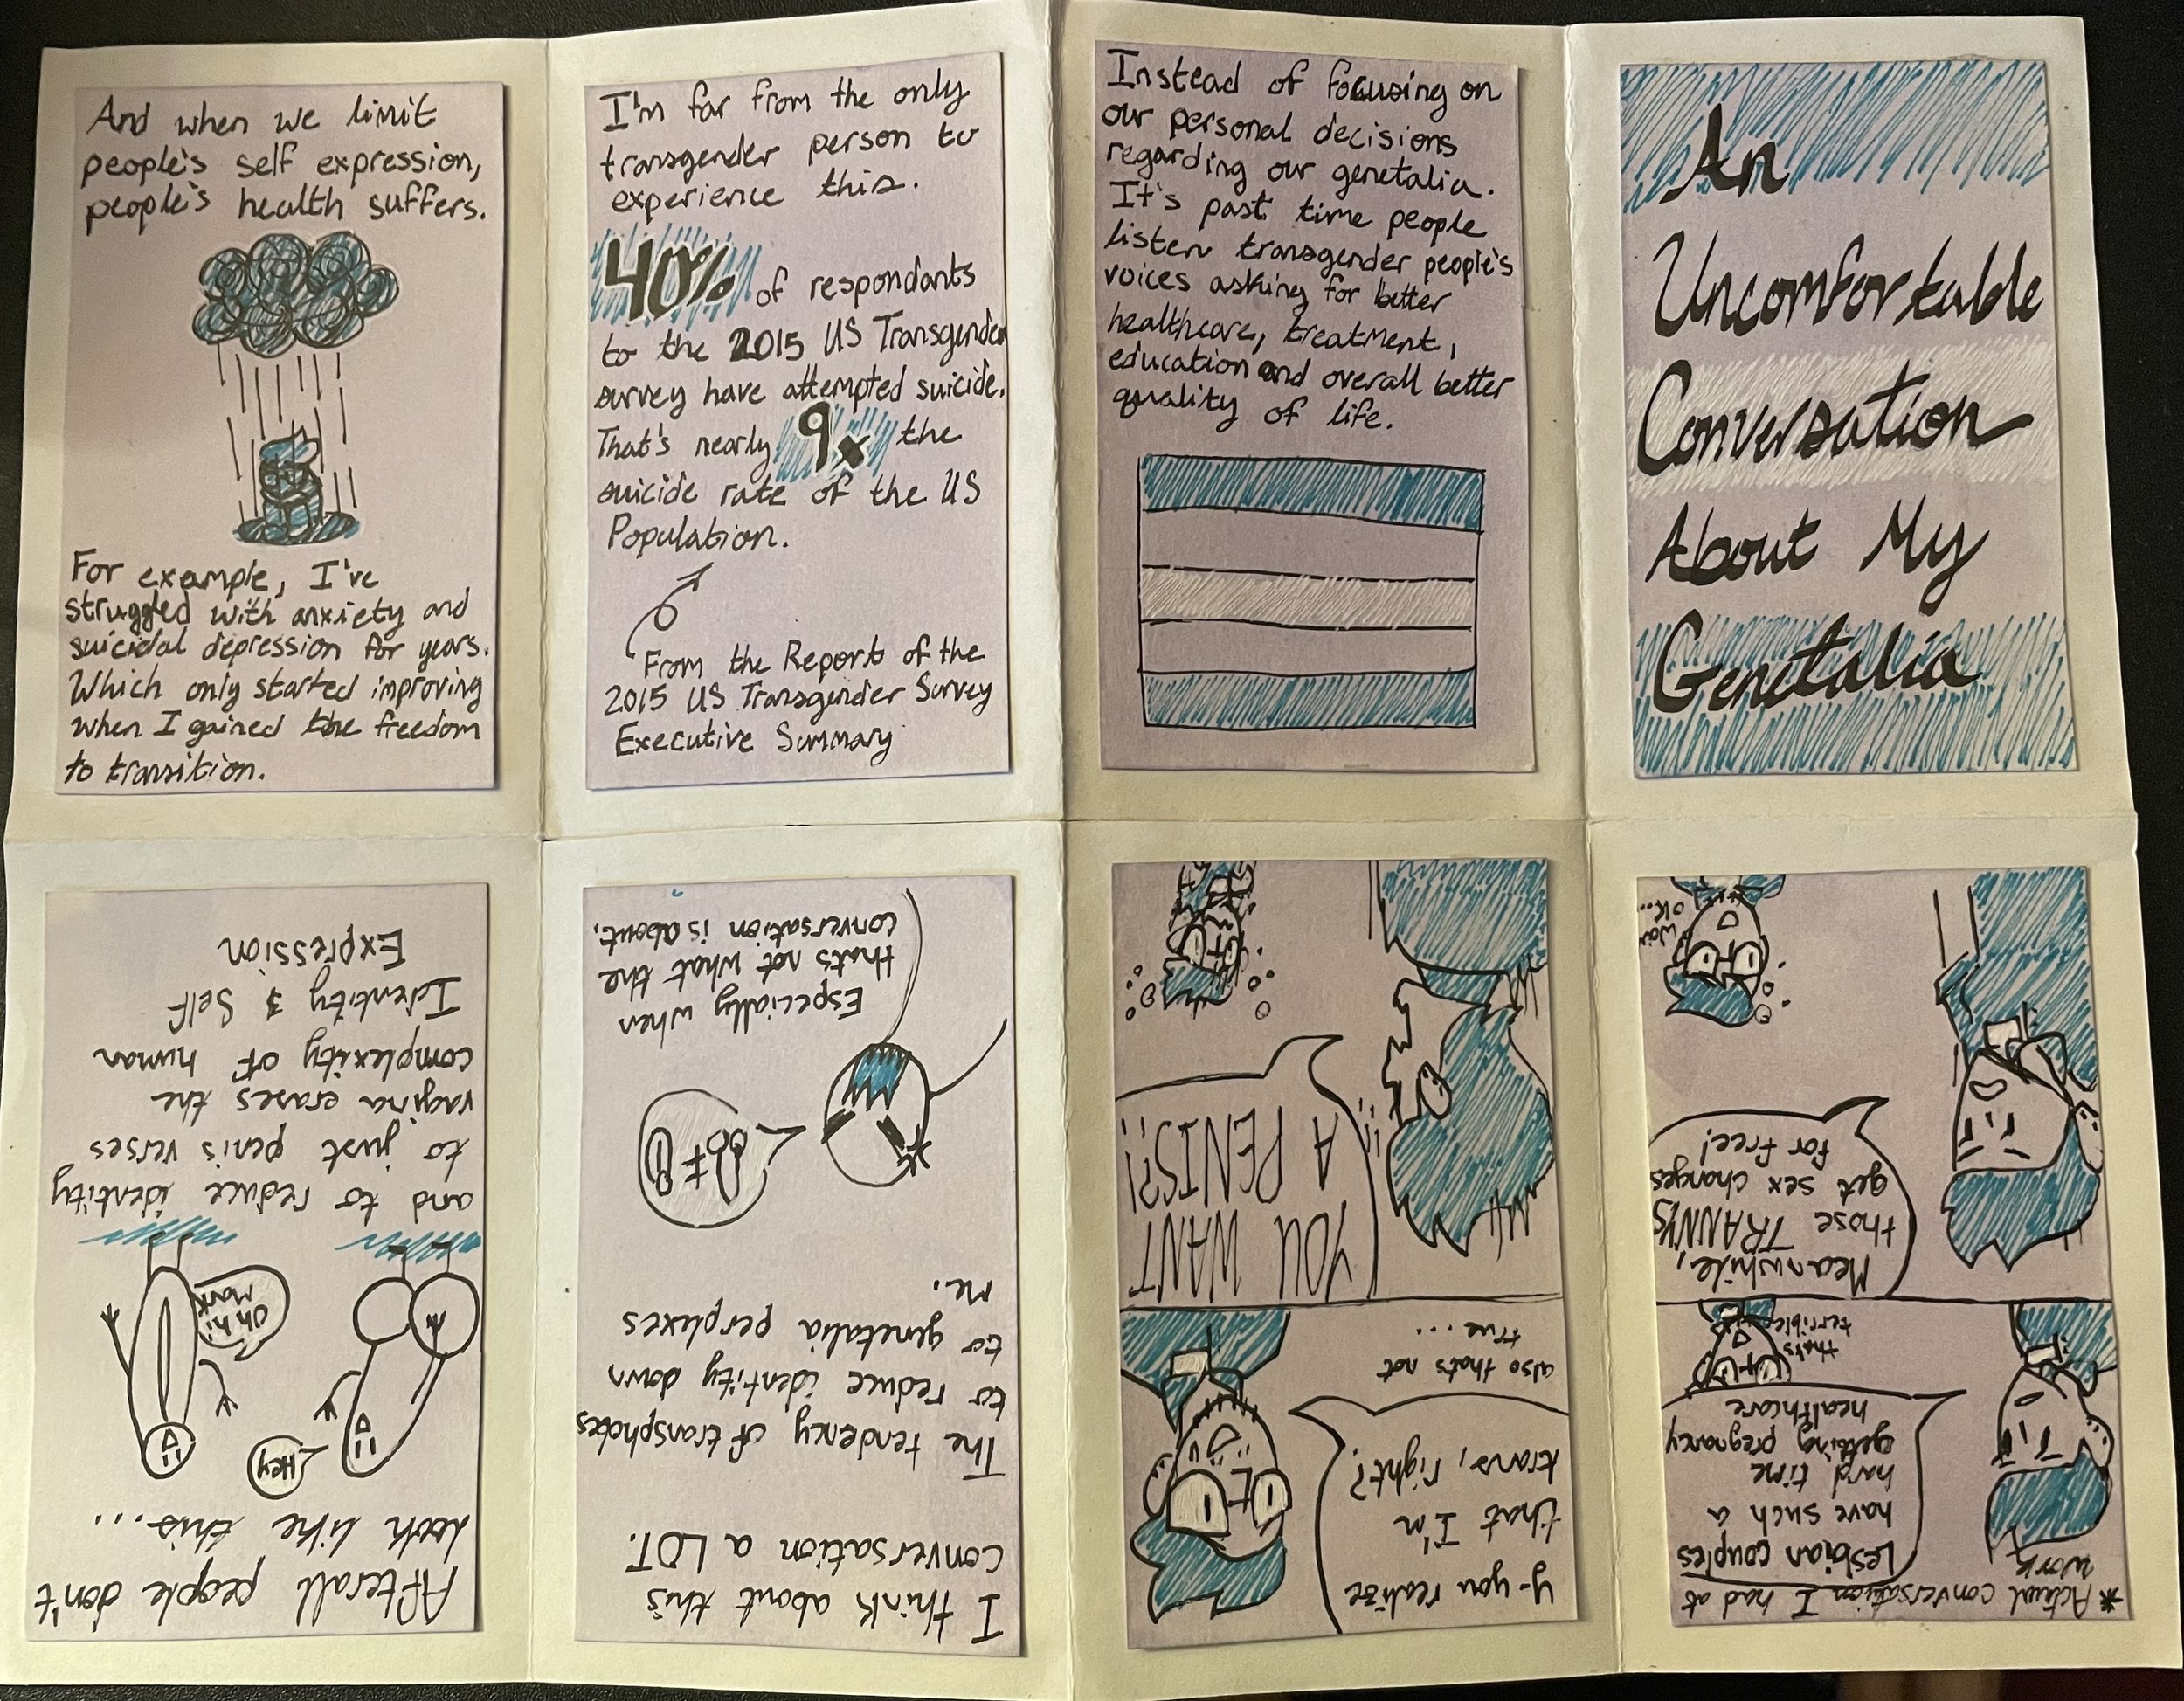 An
Uncomfortable
Conversation
About My
Genetalia
*Actual conversation I had at
work
Lesbian couples
have such a
hard time
getting pregnancy
healthcare
thats
terrible
Meanwhile,
those TRANNYS
get sex changes
for free!
OK...
y-you realize
that I'm
trans, right?
also thats not
true...
YOU WANT
A PENIS?!
I think about this
conversation a LOT.
The tendency of transphobes
to reduce identity down
to genetalia perplexes
me.
Especially when
thats not what the
conversation is about.
Afterall people don't
look like this...
Hey
Oh hi
Mark
and to reduce identity
to just penis verses
vagina erases the
complexity of human
Identity & Self
Expression
And when we limit
people's self expression,
people's health suffers.
For example, I've
struggled with anxiety and
suicidal depression for years.
Which only started improving
when I gained the freedom
to transition.
I'm far from the only
transgender person to
experience this.
40% of respondants
to the 2015 US Transgender
survey have attempted suicide.
That's nearly 9x the
suicide rate of the US
Population.
From the Report of the
2015 US Transgender Survey
Executive Summary
Instead of focusing on
our personal decisions
regarding our genetalia.
It's past time people
listen transgender people's
voices asking for better
healthcare, treatment,
education and overall better
quality of life.